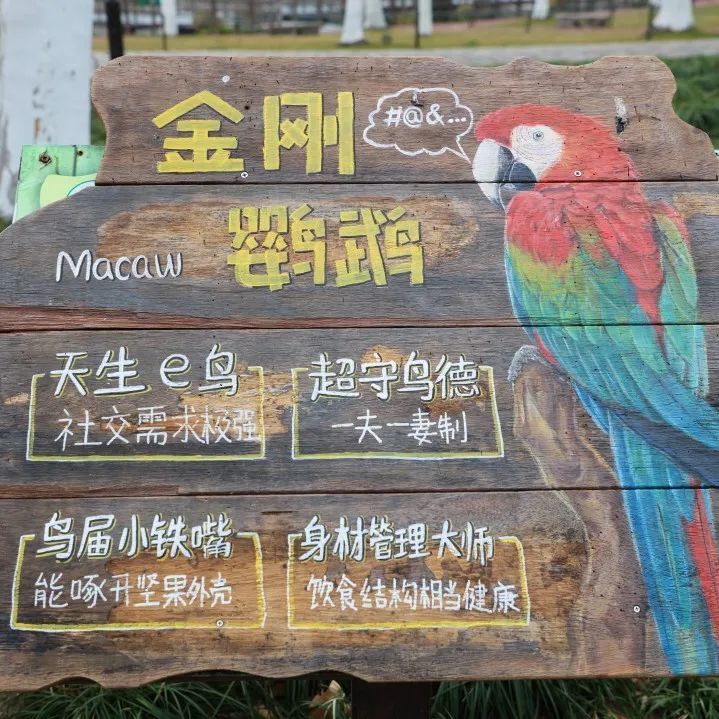 金刚
#@&...
Macaw 鹦鹉
天生e鸟
社交需求极强
超守鸟德
一夫一妻制
鸟届小铁嘴
能啄开坚果外壳
身材管理大师
饮食结构相当健康